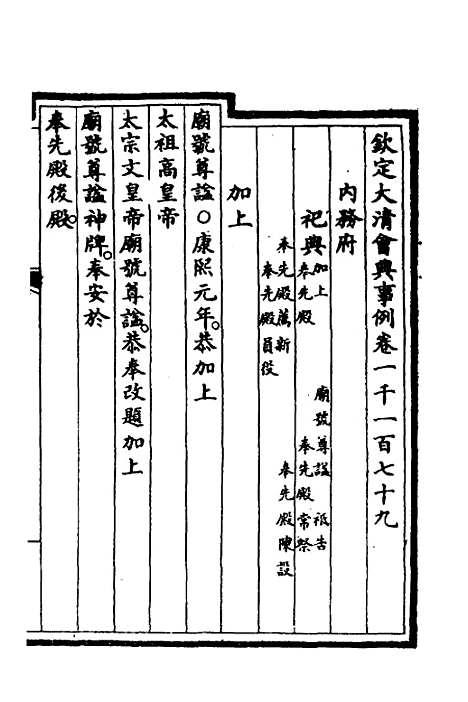 欽定大清會典事例卷一千一百七十九
內務府
祀典加上 廟號尊諡 祗告
奉先殿 奉先殿常祭
奉先殿薦新 奉先殿陳設
奉先殿員役
加上
廟號尊諡○康熙元年。恭加上
太祖高皇帝
太宗文皇帝廟號尊諡。恭奉改題加上
廟號尊諡神牌。奉安於
奉先殿後殿。